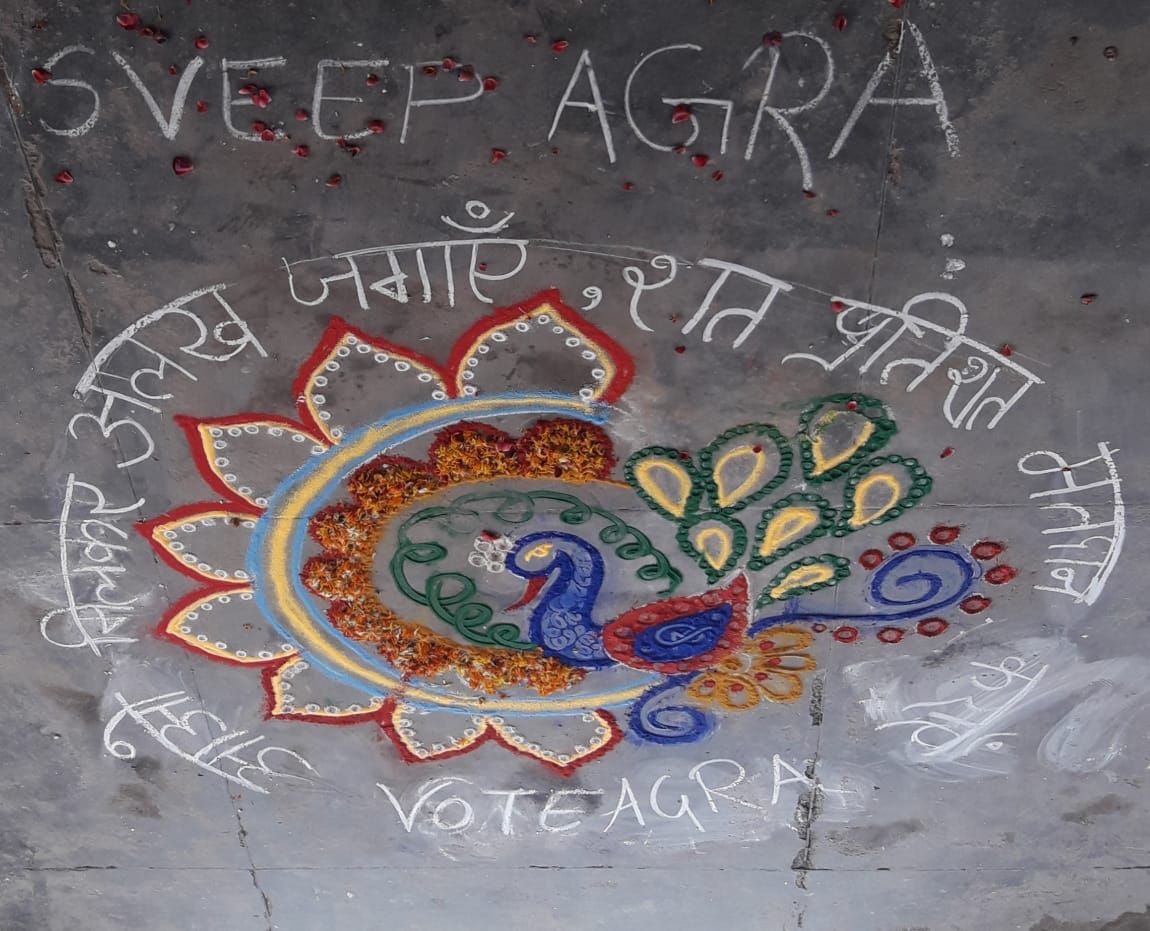 SVEEP AGRA
मिलकर अलख जगाएँ, शत प्रतिशत मतदान
VOTE AGRA